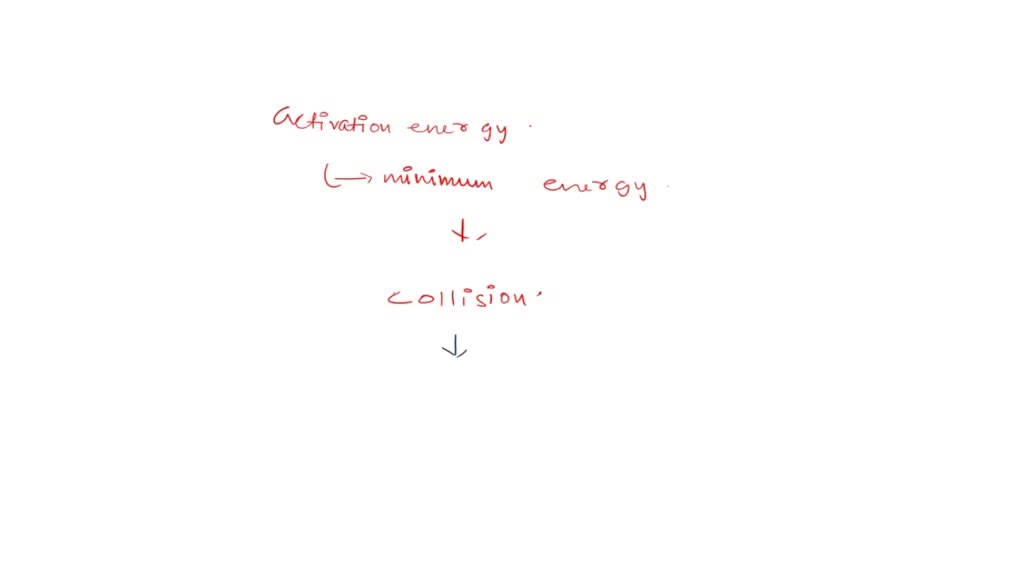 Activation energy.
↳ minimum energy.
↓
Collision.
↓